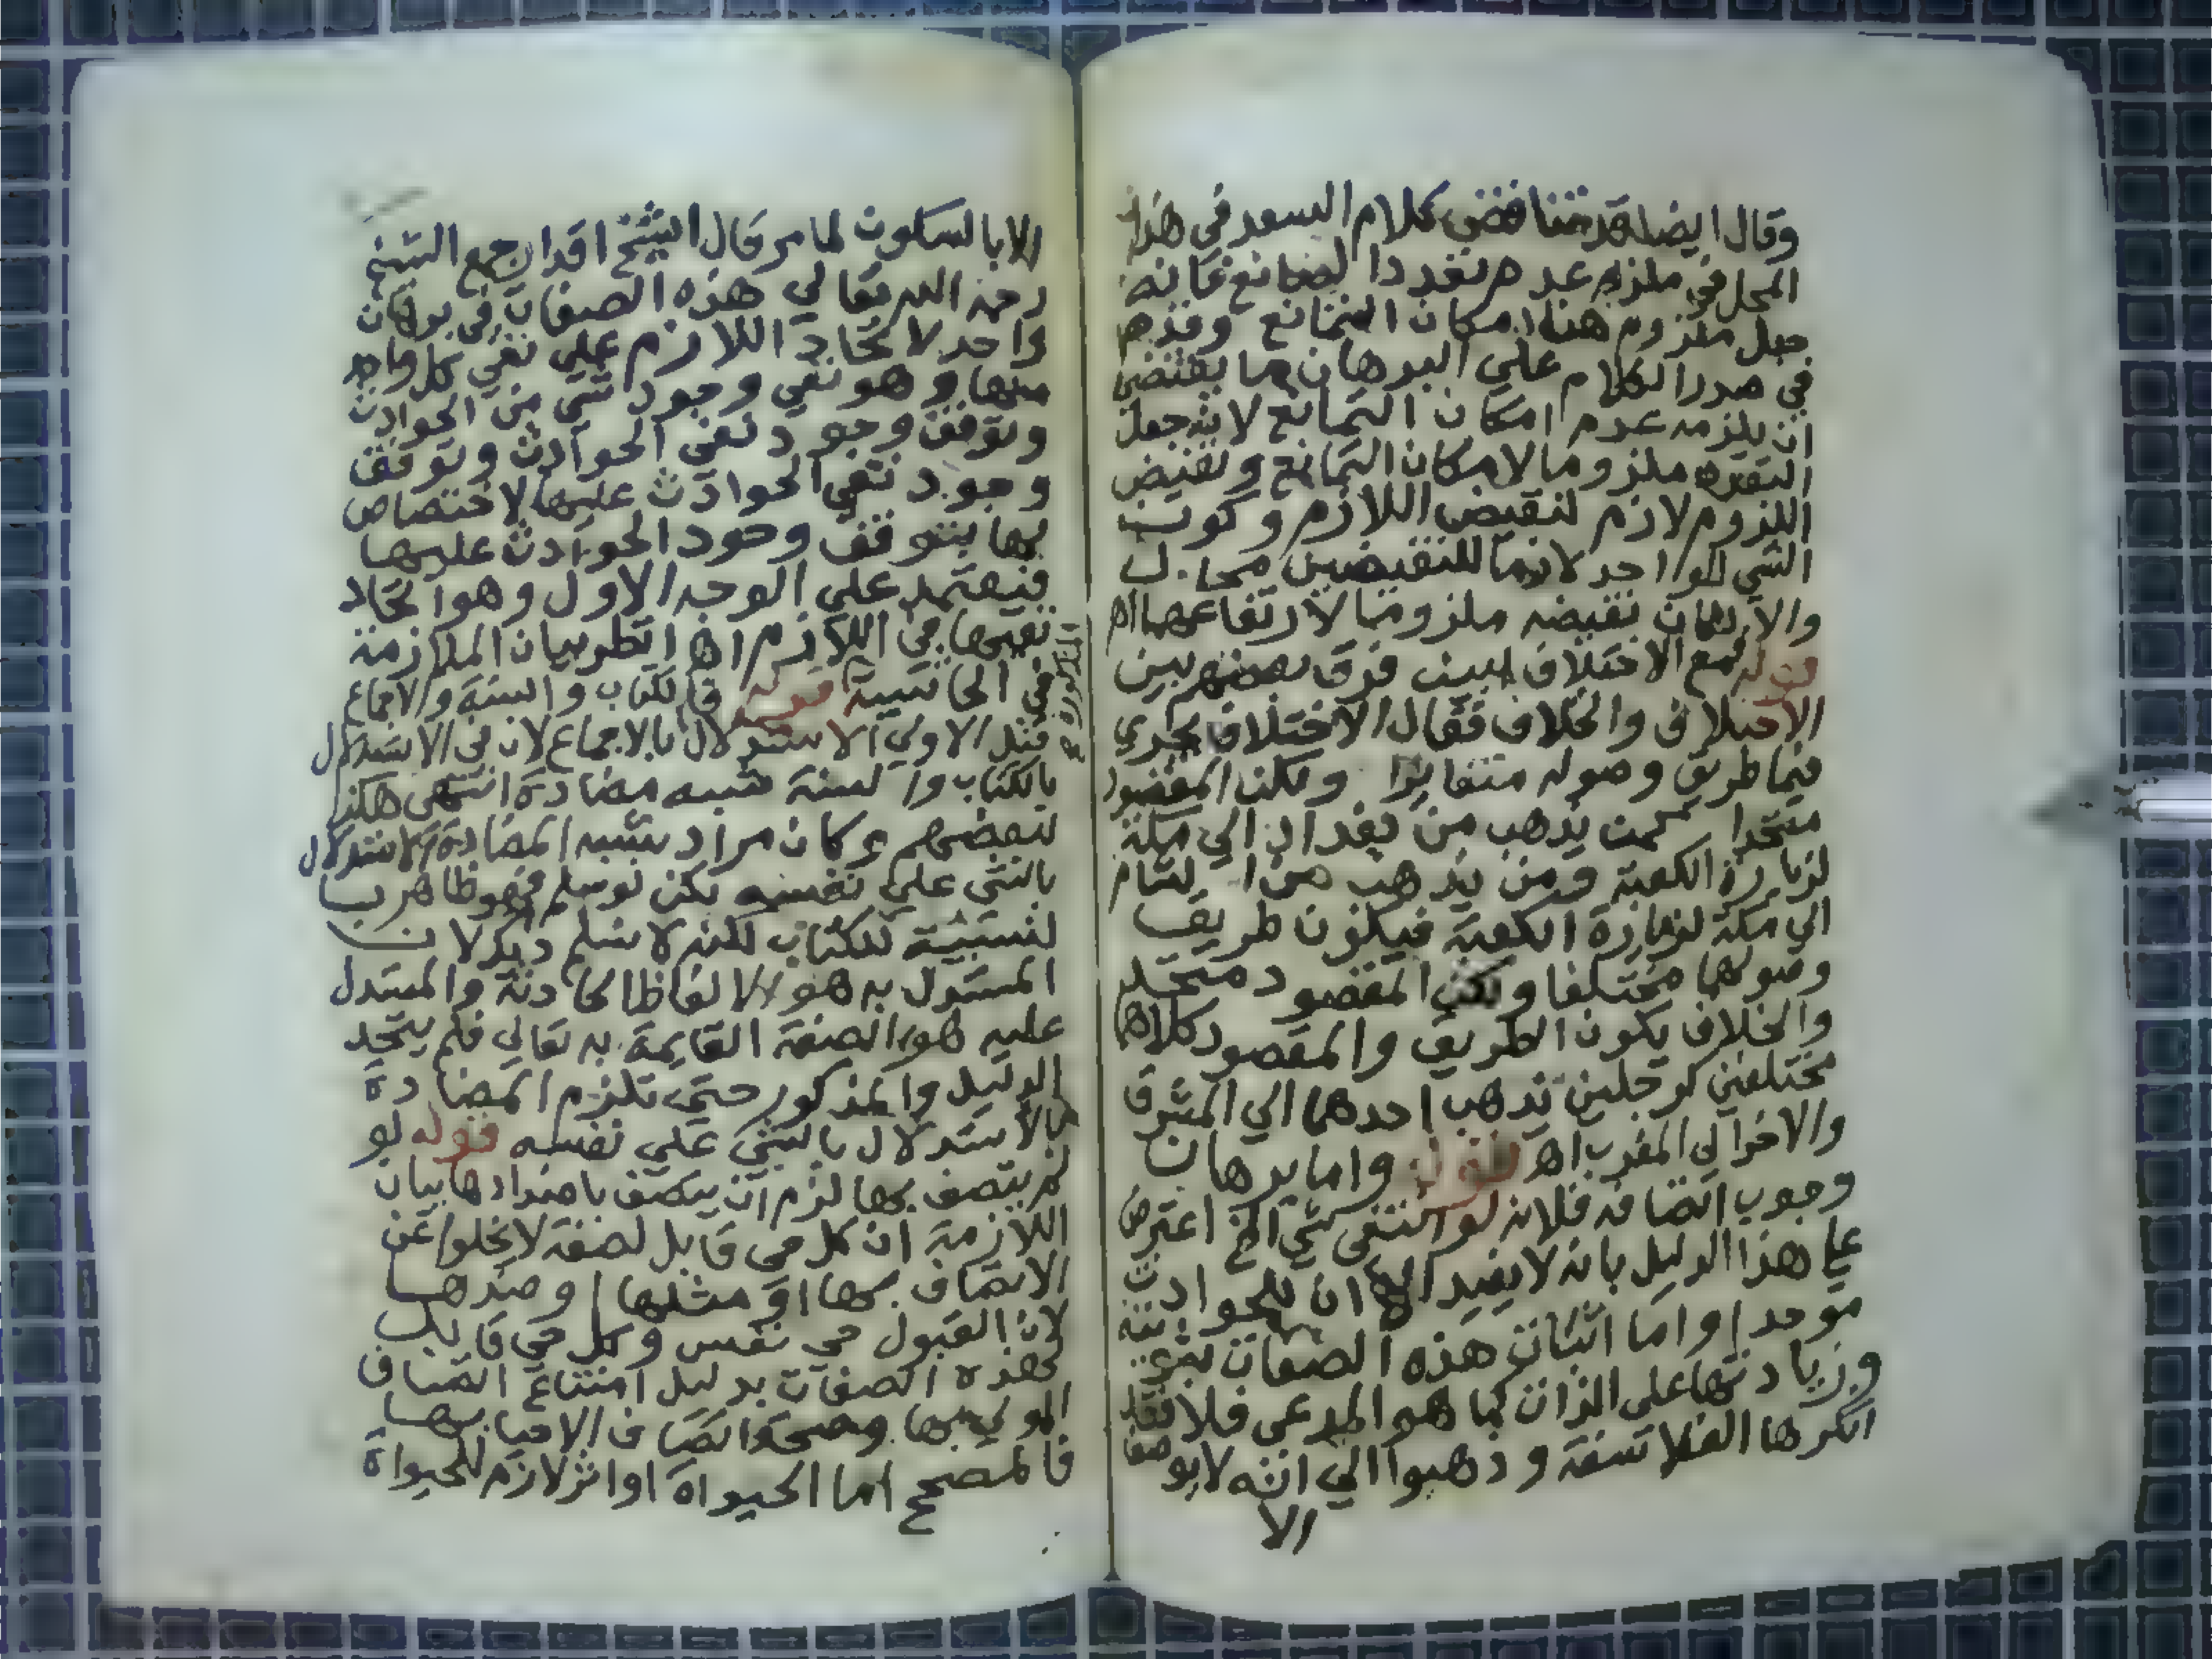 وقال ايضا قد تناقض كلام السعد في هذا
المحل في ملزوم عدم تعدد الصانع فانه
جعل ملزوم هنا امكان التمانع وقدم
في صدر الكلام على البرهان ما يقتضي
ان يلزمه عدم امكان التمانع لانه جعل
التعدد ملزوما لامكان التمانع ونقيض
اللزوم لازم لنقيض اللازم وكون
الشي الواحد لازما للنقيضين محال
والا لكان نقيضه ملزوما لارتفاعهما اه
قوله لمع الاختلاف لبيت فرق بعضهم بين
الاختلاف والخلاف فقال الاختلاف يجري
فيما طريق وصوله متغايرا ولكن المقصود
متحدا كمن يذهب من بغداد الي مكة
لزيارة الكعبة ومن يذهب من الشام
الي مكة لزيارة الكعبة فيكون طريق
وصولهما مختلفا ولكن المقصود متحد
والخلاف يكون الطريق والمقصود كلاهما
مختلفين كرجلين يذهب احدهما الي المشرق
والاخر الي المغرب اه قوله واما برهان
وجوب اتصافه فلانه لو انتفى شي الخ اعترض
على هذا الدليل بانه لا يفيد الا ان للحوادث
موجدا واما اثبات هذه الصفات
وزيادتها على الذات كما هو المدعى فلا فقد
انكرها الفلاسفة وذهبوا الي انه لا يوصف
الا
الا بالسكوت لما مر قال الشيخ اقدار جمع الشيخ
رحمه الله تعالي هذه الصفات في برهان
واحد لاتحاد اللازم على نفي كل واحد
منها وهو نفي وجود شي من الحوادث
وتوقف وجود نفي الحوادث وتوقف
وجود نفي الحوادث عليها لاختصاص
بها بتوقف وجود الحوادث عليها
فيعتمد على الوجه الاول وهو اتحاد
نفيها في اللازم اه انظر بيان الملازمة
المذكورة
في الحاشية قوله فالكتاب والسنة والاجماع
قيل الاولي الاستدلال بالاجماع لان في الاستدلال
بالكتاب والسنة شبه مضادة انتهى هكذا
لبعضهم وكان مراد بشبه المضادة الاستدلال
بالشي على نفسه لكن لو سلم فهو ظاهر با
لنسبة للكتاب لكنه لا يسلم ذلك لان
المستدل به هو الالفاظ الحادثة والمستدل
عليه هو الصفة القايمة به تعالي فلم يتحد
الدليل والمذكور حتى تلزم المضادة
بالاستدلال بالشي على نفسه قوله لو
لم يتصف بها لزم ان يتصف باضدادها بيان
اللازمة ان كل حي قابل لصفة لا يخلوا عن
الاتصاف بها او مثلها او ضدها
لان القبول حي نفس وكل حي قابل
لهذه الصفات بدليل امتناع اتصاف
المولي بها وصحة اتصاف الاحيا بها
فالمصحح اما الحيواة او اثر لازم للحيواة